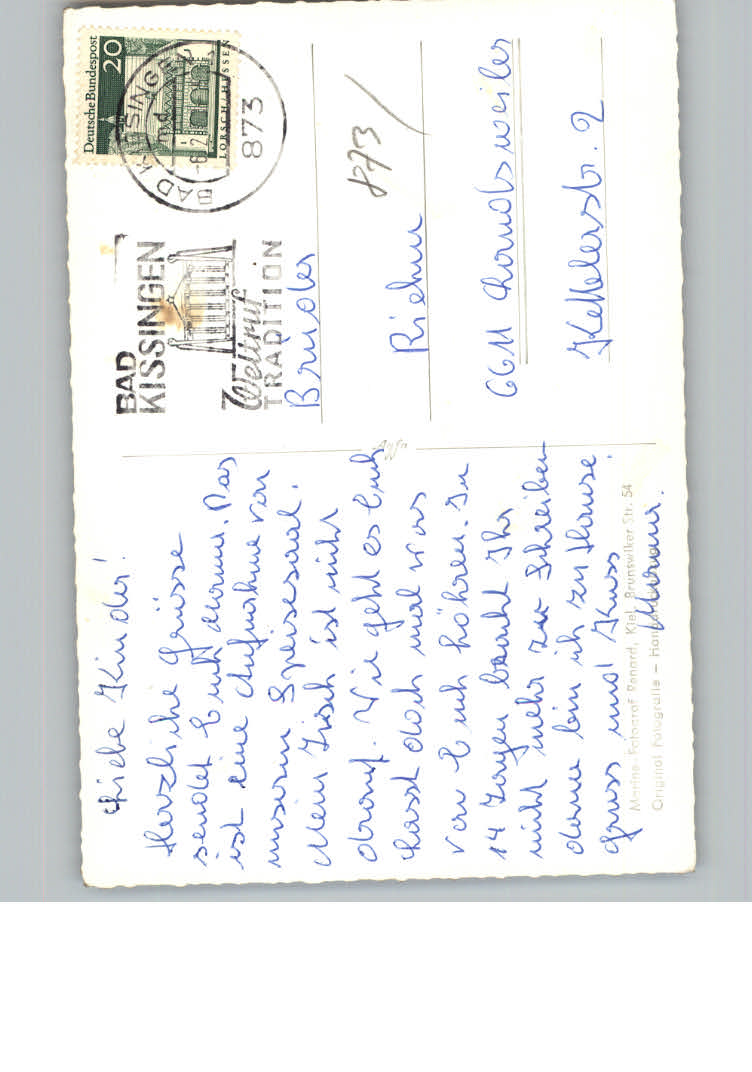 Liebe Kinder!
Herzliche Grüsse
sendet Euch Mama. Das
ist eine Aufnahme von
unserm Speisesaal.
Mein Tisch ist nicht
drauf. Wie geht es Euch
Lasst doch mal was
von Euch höhren. In
14 Tagen braucht Ihr
nicht mehr zu schreiben
dann bin ich zu Hause.
Gruss und Kuss
Mama.
Marine-Fotograf Renard, Kiel, Brunswiker Str. 54
Original Fotografie –
Deutsche Bundespost
20
LORSCH/HESSEN
BAD KISSINGEN
873
BAD
KISSINGEN
Weltruf
TRADITION
873
Brüder
Riehm
6611
Kettelerstr. 2